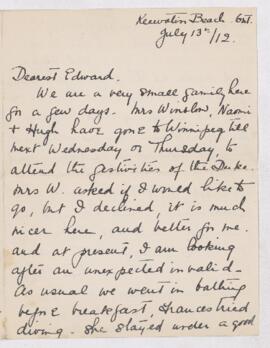 Keewatin Beach. Ont.
July 13th/12.
Dearest Edward.
We are a very small family here
for a few days. Mrs Winslow, Naomi
+ Hugh have gone to Winnipeg till
next Wednesday or Thursday, to
attend the festivities of the Duke.
Mrs W. asked if I would like to
go, but I declined, it is much
nicer here, and better for me.
and at present, I am looking
after an unexpected invalid.
As usual we went in bathing
before breakfast, Frances tried
diving. She stayed under a good